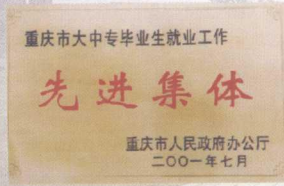 重庆市大中专毕业生就业工作
先进集体
重庆市人民政府办公厅
二〇〇一年七月